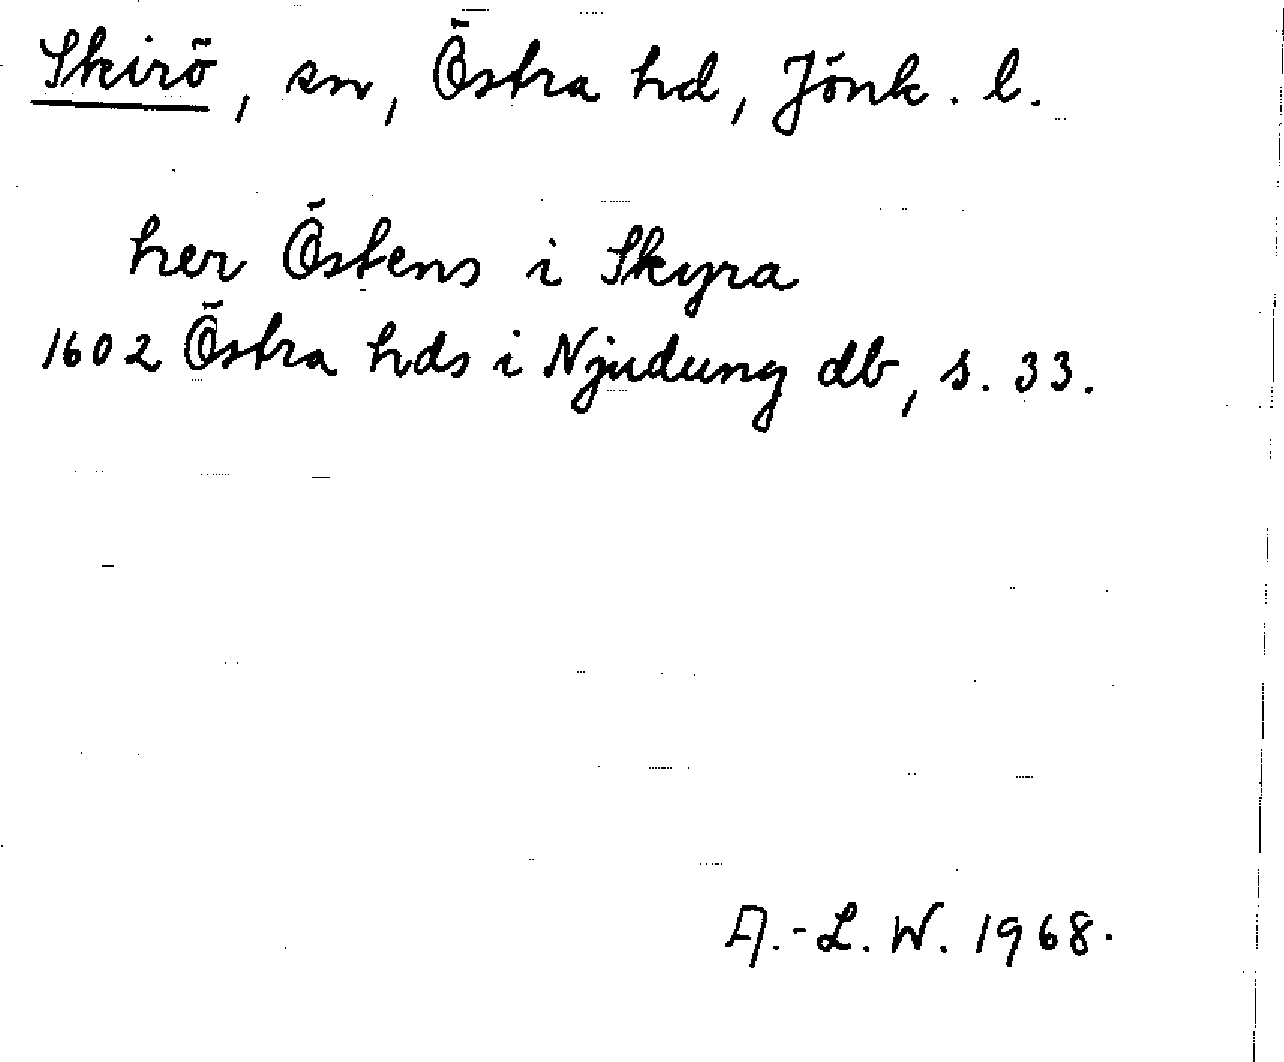 Skirö, sn, Östra hd, Jönk. l.
her Östens i Skyra
1602 Östra hds i Njudung db, s. 33.
A.-L. W. 1968.